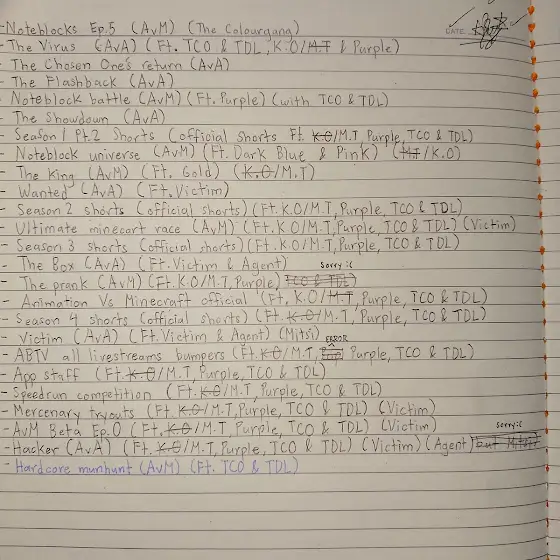 DATE
-Noteblocks Ep.5 (AvM) (The Colourgang)
- The Virus (AvA) (Ft. TCO & TDL, K.O/M.T & Purple)
- The Chosen One's return (AvA)
- The Flashback (AvA)
- Noteblock battle (AvM) (Ft. Purple) (with TCO & TDL)
- The Showdown (AvA)
- Season 1 Pt.2 Shorts (official shorts Ft. K.O/M.T Purple, TCO & TDL)
- Noteblock universe (AvM) (Ft. Dark Blue & Pink) (M.T/K.O)
- The King (AvM) (Ft. Gold) (K.O/M.T)
- Wanted (AvA) (Ft. Victim)
- Season 2 shorts (official shorts) (Ft. K.O/M.T, Purple, TCO & TDL)
- Ultimate minecart race (AvM) (Ft. K.O/M.T, Purple, TCO & TDL) (Victim)
- Season 3 shorts (official shorts) (Ft. K.O/M.T, Purple, TCO & TDL)
- The Box (AvA) (Ft. Victim & Agent) Sorry :(
- The prank (AvM) (Ft. K.O/M.T, Purple) TCO & TDL)
- Animation Vs Minecraft official (Ft. K.O/M.T, Purple, TCO & TDL)
- Season 4 shorts (official shorts) (Ft. K.O/M.T, Purple, TCO & TDL)
- Victim (AvA) (Ft. Victim & Agent) (Mitsi) ERROR
- ABTV all livestreams bumpers (Ft. K.O/M.T, Purple, TCO & TDL)
- App staff (Ft. K.O/M.T, Purple, TCO & TDL)
- Speedrun competition (Ft. K.O/M.T, Purple, TCO & TDL)
- Mercenary tryouts (Ft. K.O/M.T, Purple, TCO & TDL) (Victim)
- AvM Beta Ep.0 (Ft. K.O/M.T, Purple, TCO & TDL) (Victim) Sorry :(
- Hacker (AvA) (Ft. K.O/M.T, Purple, TCO & TDL) (Victim) (Agent) but Mitsi
- Hardcore munhunt (AvM) (Ft. TCO & TDL)